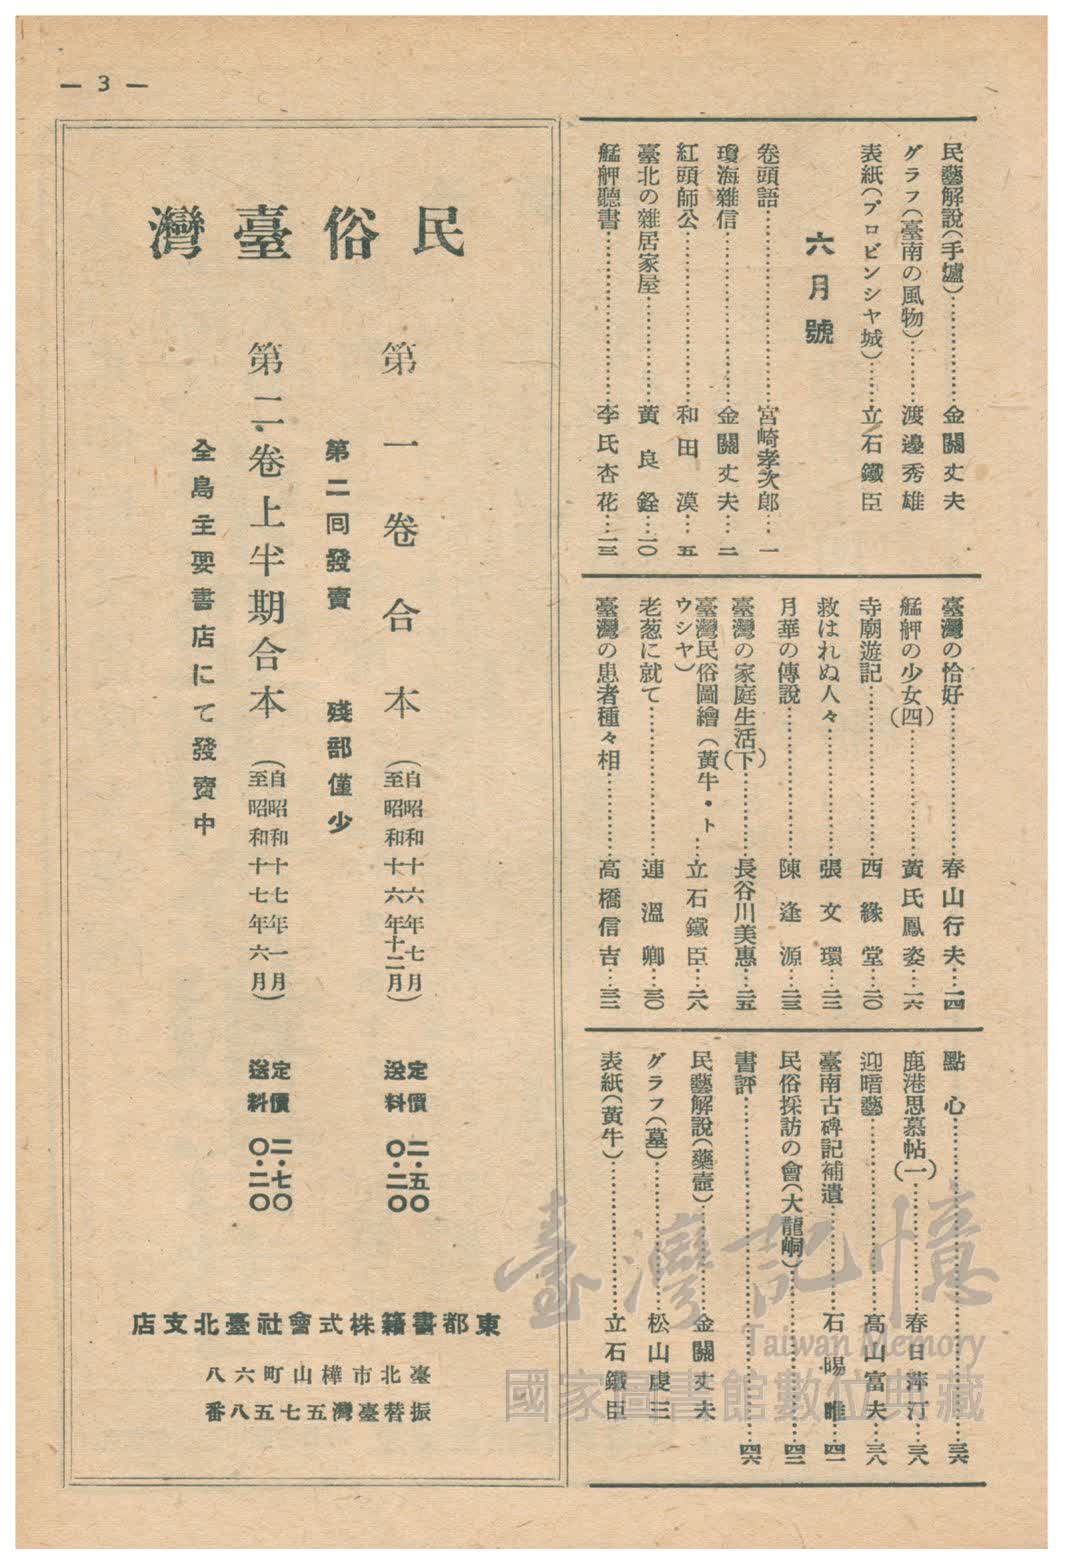 — 3 —
民藝解說(手爐)……金關丈夫
グラフ(臺南の風物)……渡邊秀雄
表紙(プロビンシヤ城)……立石鐵臣
六月號
卷頭語……宮崎孝次郎…一
瓊海雜信……金關丈夫…二
紅頭師公……和田漠…五
臺北の雜居家屋……黃良銓…一〇
艋舺聽書……李氏杏花…一三
臺灣の恰好……春山行夫…一四
艋舺の少女(四)……黃氏鳳姿…一六
寺廟遊記……西緣堂…二〇
救はれぬ人々……張文環…二二
月華の傳說……陳逢源…二三
臺灣の家庭生活(下)……長谷川美惠…二五
臺灣民俗圖繪(黃牛・ト
ウシヤ)……立石鐵臣…二八
老葱に就て……連溫卿…三〇
臺灣の患者種々相……高橋信吉…三二
點心……三六
鹿港思慕帖(一)……春日萍汀…三八
迎暗藝……高山富夫…三八
臺南古碑記補遺……石暘睢…四一
民俗採訪の會(大龍峒)……四三
書評……四六
民藝解說(藥壺)……金關丈夫
グラフ(墓)……松山虔三
表紙(黃牛)……立石鐵臣
民俗臺灣
第一卷合本(自昭和十六年七月至昭和十六年十二月)定價二・五〇送料〇・二〇
第二囘發賣 殘部僅少
第二卷上半期合本(自昭和十七年一月至昭和十七年六月)定價二・七〇送料〇・二〇
全島主要書店にて發賣中
東都書籍株式會社臺北支店
臺北市樺山町六八
振替臺灣五七五八番
臺灣記憶
Taiwan Memory
國家圖書館數位典藏